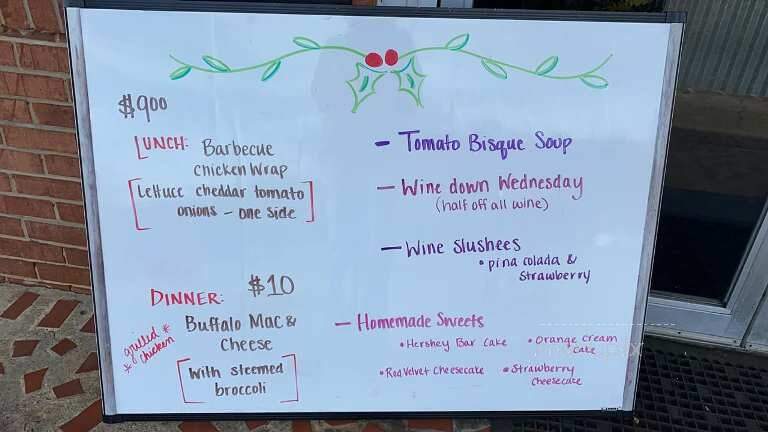 $900
LUNCH: Barbecue
chicken Wrap
[Lettuce cheddar tomato
onions - one side]
DINNER: $10
Buffalo Mac &
Cheese
* grilled
chicken *
[With steemed
broccoli]
- Tomato Bisque Soup
- Wine down Wednesday
(half off all wine)
- Wine Slushees
• pina colada &
Strawberry
- Homemade Sweets
• Hershey Bar Cake • Orange cream
cake
• Red Velvet Cheesecake • Strawberry
Cheesecake